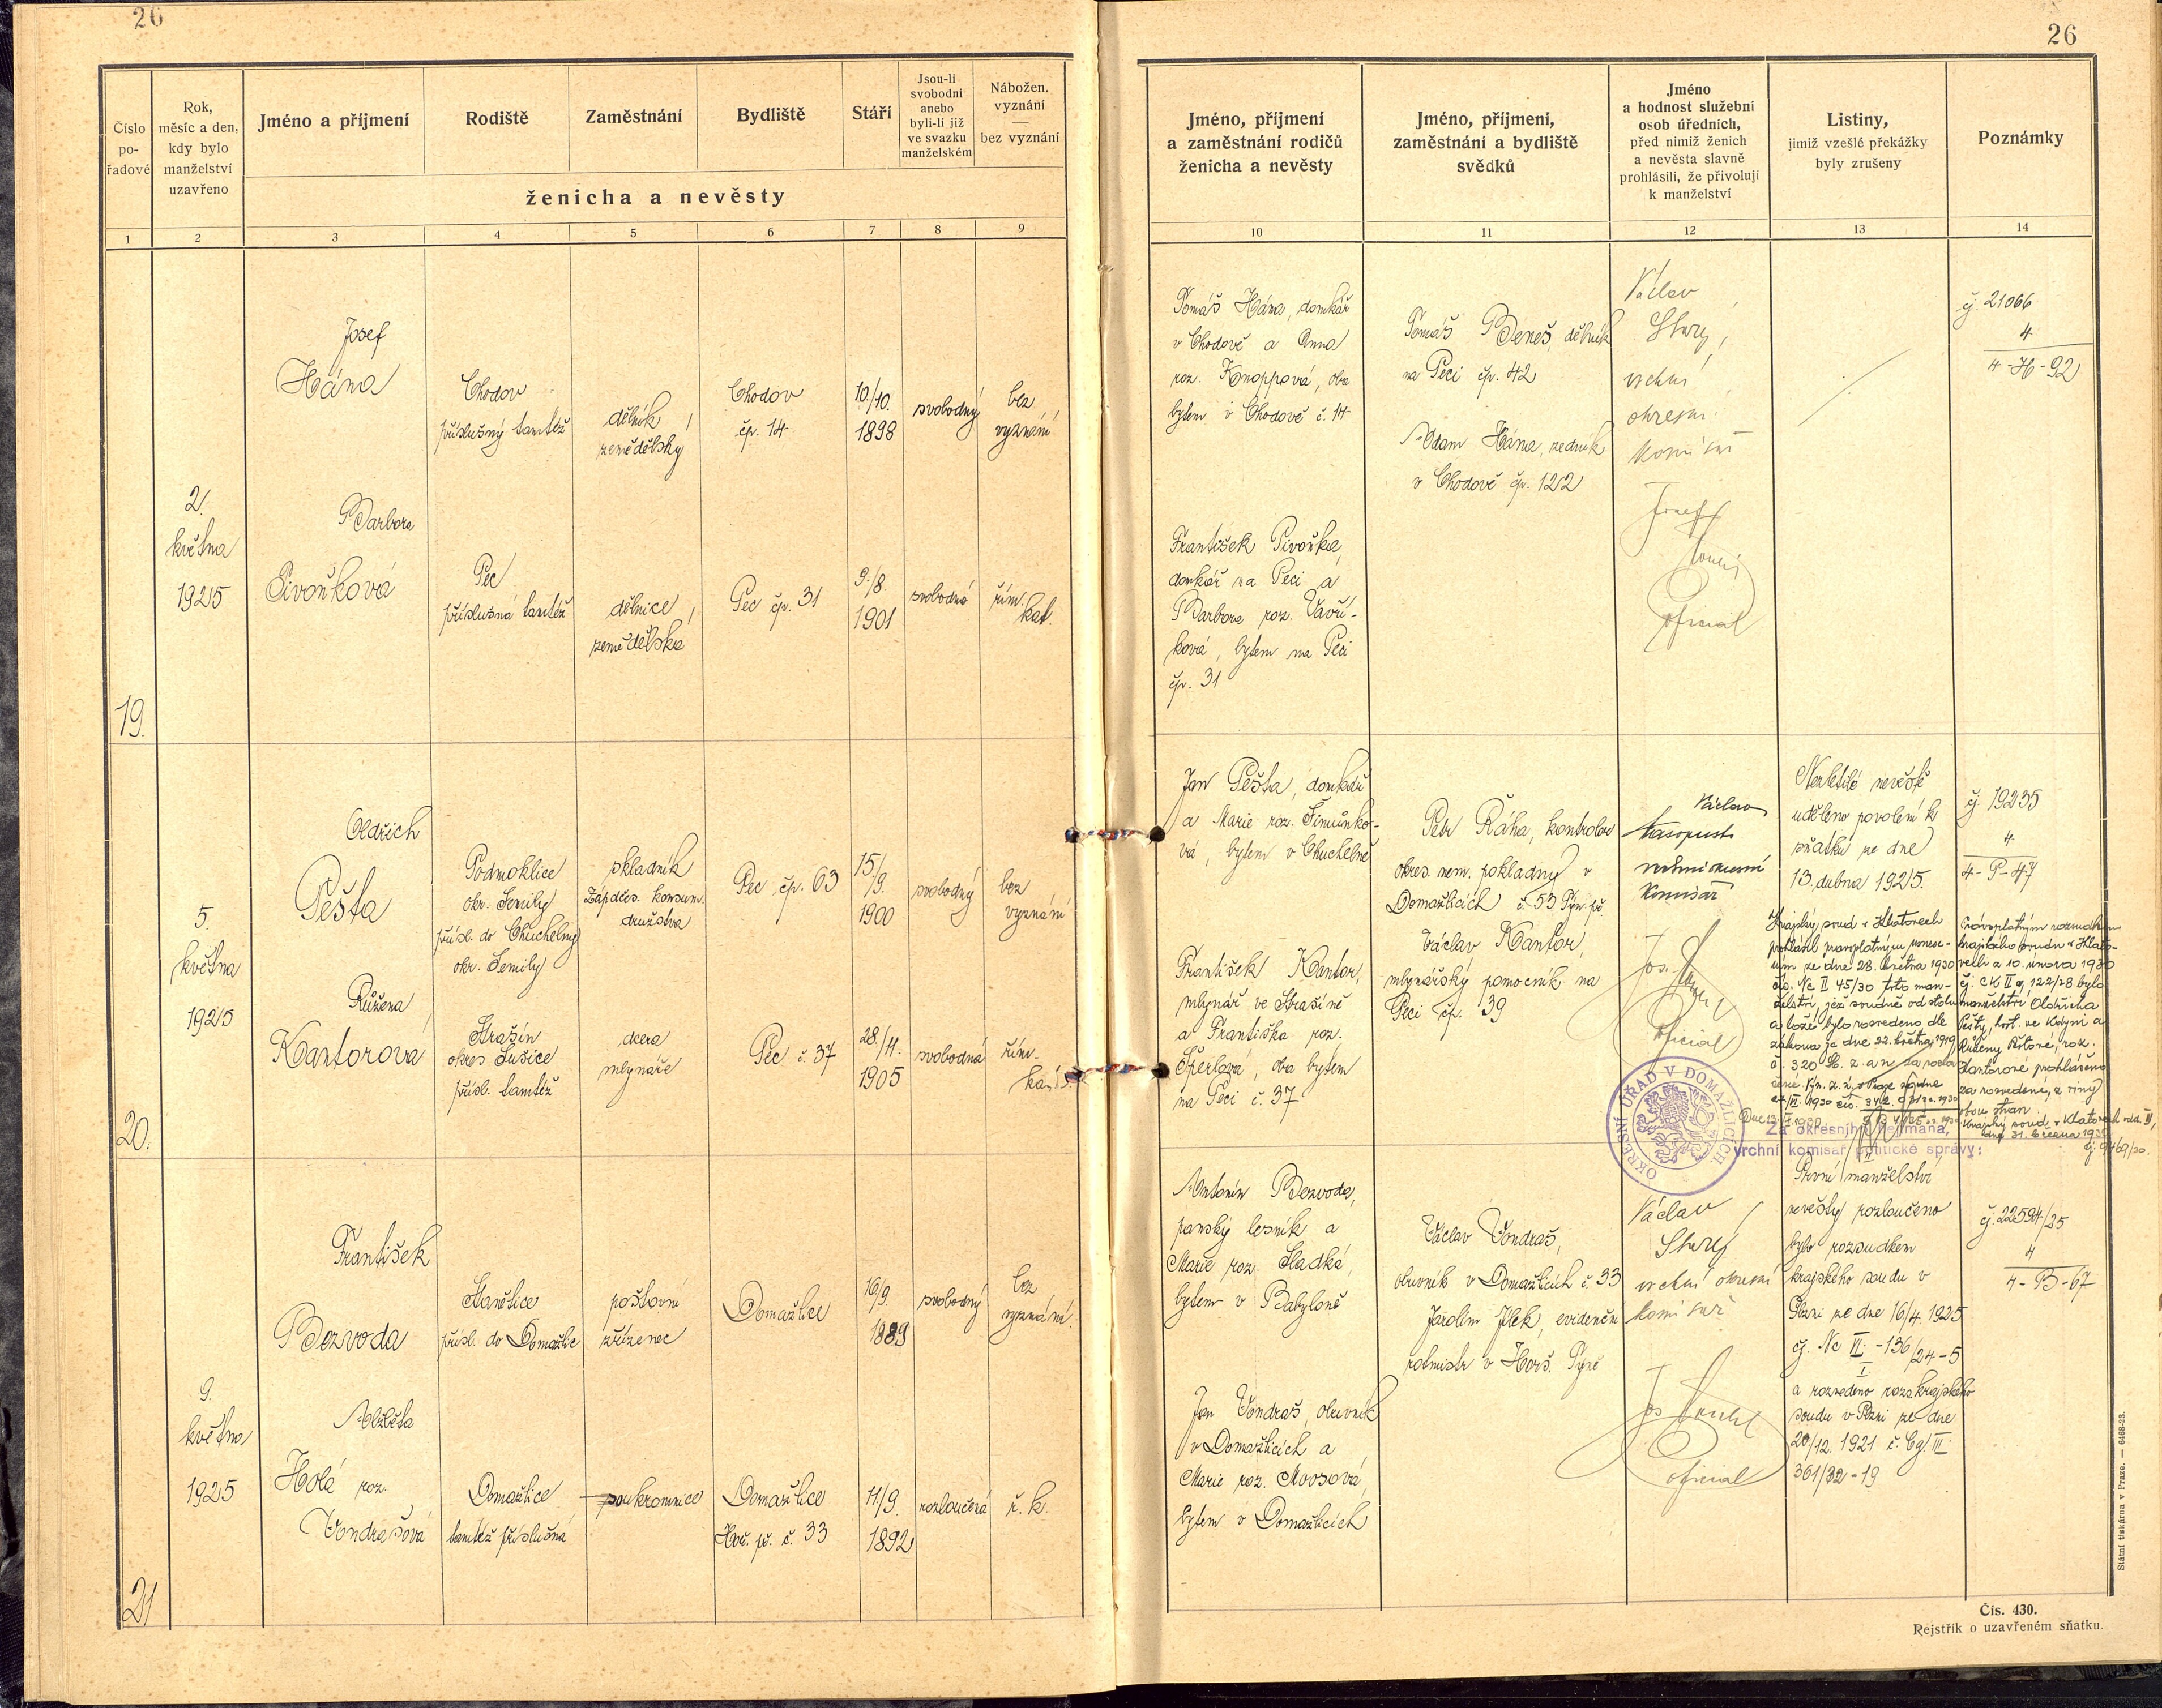 26
26
Číslo pořadové
Rok, měsíc a den, kdy bylo manželství uzavřeno
Jméno a příjmení
Rodiště
Zaměstnání
Bydliště
Stáří
Jsou-li svobodni anebo byli-li již ve svazku manželském
Nábožen. vyznání — bez vyznání
ženicha a nevěsty
Jméno, příjmení a zaměstnání rodičů ženicha a nevěsty
Jméno, příjmení, zaměstnání a bydliště svědků
Jméno a hodnost služební osob úředních, před nimiž ženich a nevěsta slavně prohlásili, že přivolují k manželství
Listiny, jimiž vzešlé překážky byly zrušeny
Poznámky
1 2 3 4 5 6 7 8 9 10 11 12 13 14
19.
2.
května
1925
Josef
Hána
Chodov
příslušný tamtéž
dělník
zemědělský
Chodov
čp. 14
10/10.
1898
svobodný
bez
vyznání
Barbora
Pivoňková
Pec
příslušná tamtéž
dělnice
zemědělská
Pec čp. 31
9./8.
1901
svobodná
řím.
kat.
Tomáš Hána, domkář
v Chodově a Anna
roz. Knoppová, oba
bytem v Chodově č. 14
František Pivoňka,
domkář na Peci a
Barbora roz. Vavří-
ková, bytem na Peci
čp. 31
Tomáš Beneš, dělník
na Peci čp. 42
Adam Hána, zedník
v Chodově čp. 122
Václav
vrchní
okresní
komisař
Josef
oficial
čj. 21066
4
4-H-92
20.
5.
května
1925
Oldřich
Pešta
Podmoklice
okr. Semily
přísl. do Chuchelny
okr. Semily
skladník
Západčes. konsum.
družstva
Pec čp. 63
15./9.
1900
svobodný
bez
vyznání
Růžena
Kantorová
Strašín
okres Sušice
přísl. tamtéž
dcera
mlynáře
Pec č. 37
28./4.
1905
svobodná
řím.-
kat.
Jan Pešta, domkář
a Marie roz. Šimůnko-
vá, bytem v Chuchelně
František Kantor,
mlynář ve Strašíně
a Františka roz.
Šperlová, oba bytem
na Peci č. 37
Petr Ráha, kontrolor
okres. nem. pokladny v
Domažlicích č. 53 Týn. př.
Václav Kantor,
mlynářský pomocník na
Peci čp. 39
Václav
komisař
Jos.
oficial
Nezletilé nevěstě
uděleno povolení k
sňatku ze dne
13. dubna 1925.
Krajský soud v Klatovech
prohlásil pravoplatným usnese-
ním ze dne 28. května 1930
čís. Nc II 45/30 toto man-
želství, jež soudně od stolu
a lože bylo rozvedeno dle
zákona ze dne 22. května 1919
č. 320 Sb. z. a n. za rozlou-
čené
čj. 19235
4
4-P-47
Pravoplatným rozsudkem
krajského soudu v Klato-
vech z 10. února 1930
čj. CK II a 122/28 bylo
manželství Oldřicha
Pešty, host. ve Kdyni a
Růženy Peštové, roz.
Kantorové prohlášeno
za rozvedené, z viny
obou stran.
Krajský soud v Klatovech odd. II,
dne 31. března 1930
OKRESNÍ ÚŘAD V DOMAŽLICÍCH
Za okresního hejtmana,
vrchní komisař politické správy:
21
9.
května
1925
František
Bezvoda
Stanětice
přísl. do Domažlic
poštovní
zřízenec
Domažlice
16/9.
1889
svobodný
bez
vyznání.
Alžběta
Holá roz.
Vondrašová
Domažlice
tamtéž příslušná
soukromnice
Domažlice
Hoř. př. č. 33
11/9.
1892
rozloučená
ř. k.
Antonín Bezvoda,
panský lesník a
Marie roz. Sladká,
bytem v Babyloně
Jan Vondraš, obuvník
v Domažlicích a
Marie roz. Moosová,
bytem v Domažlicích
Václav Vondraš,
obuvník v Domažlicích č. 33
Jarolím Jílek, evidenční
rotmistr v Horš. Týně
Václav
vrchní okresní
komisař
Jos
oficial
První manželství
nevěsty rozloučeno
bylo rozsudkem
krajského soudu v
Plzni ze dne 16/4. 1925
čj. Nc VI. -136/24-5
I.
a rozvedeno rozs. krajského
soudu v Plzni ze dne
20/12. 1921 č. Cg. III.
361/32-19
čj. 22594/25
4
4-B-67
Státní tiskárna v Praze. — 6468-23.
Čís. 430.
Rejstřík o uzavřeném sňatku.